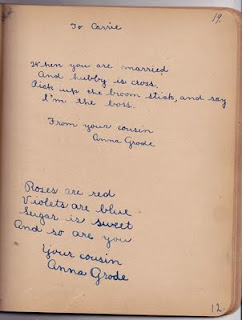 19
To Carrie
When you are married
And hubby is cross,
Pick up the broom stick, and say
I'm the boss.
From your cousin
Anna Grode
Roses are red
Violets are blue
Sugar is sweet
And so are you
Your cousin
Anna Grode
12